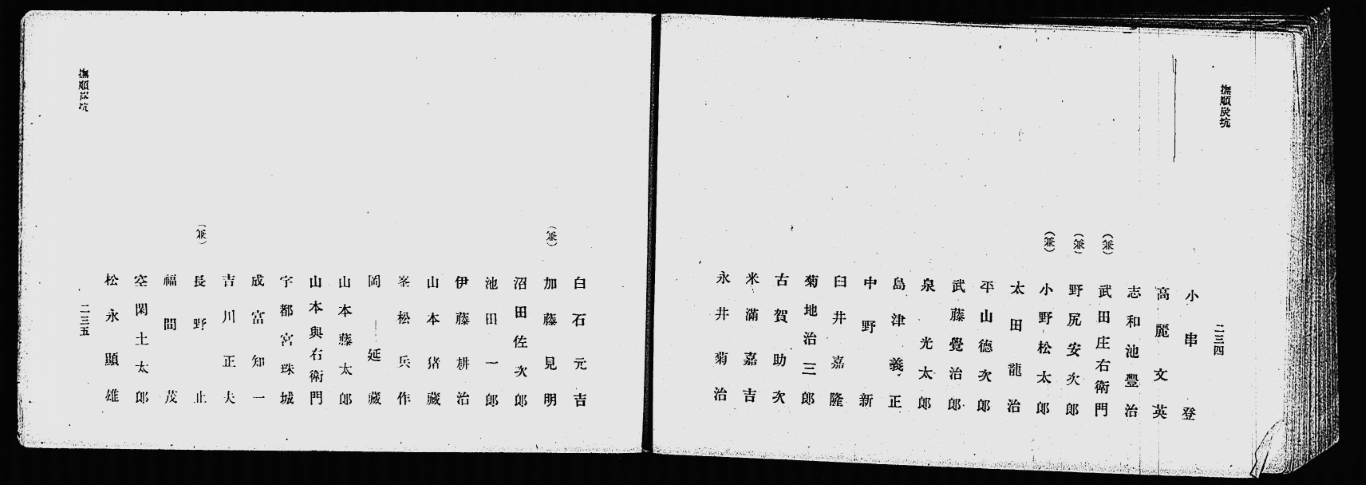 撫順炭坑
二三四
小串登
高麗文英
志和池豐治
(兼)武田庄右衛門
(兼)野尻安次郎
(兼)小野松太郎
太田龍治
平山德次郎
武藤覺治郎
泉光太郎
島津義正
中野新
臼井嘉隆
菊地治三郎
古賀助次
米滿嘉吉
永井菊治
白石元吉
(兼)加藤見明
沼田佐次郎
池田一郎
伊藤耕治
山本猪藏
峯松兵作
岡延藏
山本藤太郎
山本與右衛門
宇都宮珠城
成富知一
吉川正夫
(兼)長野止
福間茂
空閑土太郎
松永顯雄
撫順炭坑
二三五